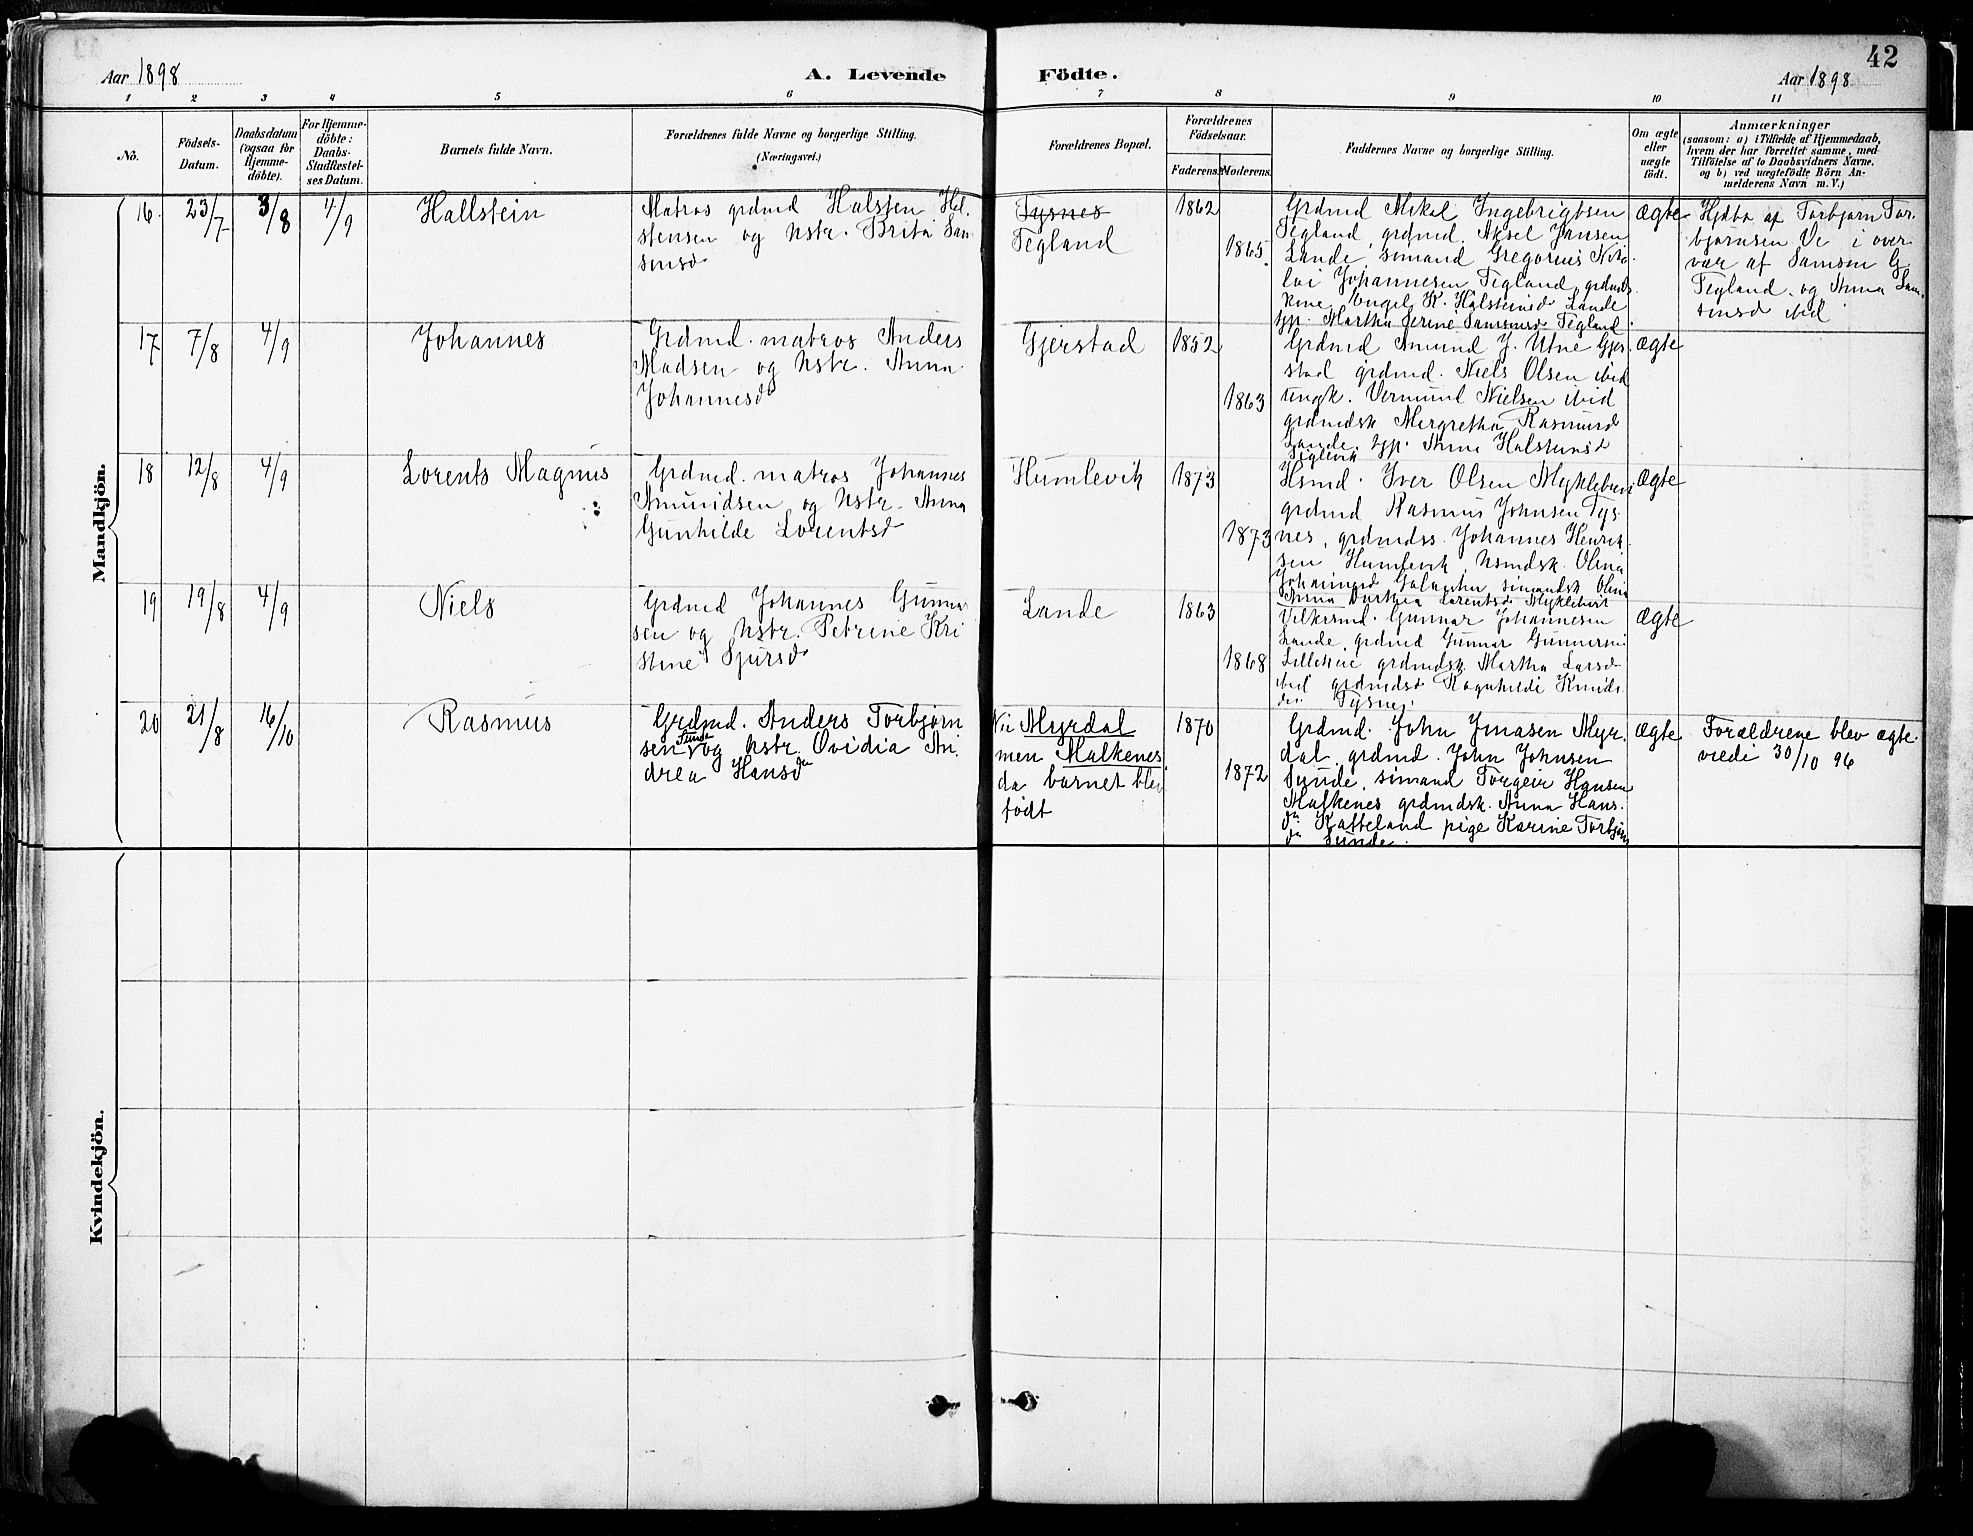 42
Aar 1898
A. Levende Födte.
Aar 1898
1 2 3 4 5 6 7 8 9 10 11
No.
Födsels-
Datum.
Daabsdatum
(ogsaa for
Hjemme-
döbte).
For Hjemme-
döbte:
Daabs-
Stadfæstel-
ses Datum.
Barnets fulde Navn.
Forældrenes fulde Navne og borgerlige Stilling.
(Næringsvei.)
Forældrenes Bopæl.
Forældrenes
Födselsaar.
Faderens. Moderens.
Faddernes Navne og borgerlige Stilling.
Om ægte
eller
uægte
födt.
Anmærkninger
(saasom: a) i Tilfælde af Hjemmedaab,
hvem der har forrettet samme, med
Tilföielse af to Daabsvidners Navne,
og b) ved uægtefödte Börn An-
melderens Navn m. V.)
Mandkjön.
16. 23/7 3/8 4/9
Hallstein
Matros grdmd Halsten Hal-
stensen og hstr. Brita Sam
sonsd
Tysnes
Tegland
1862
1865.
Grdmd Mikal Ingebrigtsen
Tegland, grdmd. Aksel Jansen
Lande, sömand Gregorius Niko-
lai Johannesen Tegland, grdmds
kone Engel K. Halsteinsd Lande
tjp. Martha Serine Samsonsd Tegland
ægte
Hjdbt af Torbjørn Tor-
bjørnsen Ve i over-
vær af Samson G.
Tegland og Anna Sam-
sonsd ibid
17 7/8 4/9
Johannes
Grdmd. matros Anders
Madsen og hstr. Anna
Johannesd
Gjerstad
1852
1863
Grdmd Amund J. Utne Gjer-
stad grdmd. Niels Olsen ibid
ungk. Vermund Nielsen ibid
grdmdsk Mergretha Rasmusd
Lande, tjp. Anna Halstensd
Teglevik
ægte
18 12/8 4/9
Lorents Magnus
Grdmd. matros Johannes
Amundsen og hstr. Anna
Gunhilde Lorentsd
Humlevik
1873
1873
Hsmd. Iver Olsen Myklebust
grdmd Rasmus Johnsen Tys
nes, grdmdss. Johannes Henrik-
sen Humlevik, hsmdsk. Olina
Johannesd sömandsk Olina
Anna Dorthea Lorentsd Myklebust
ægte
19 19/8 4/9
Niels
Grdmd Johannes Gunnar
sen og hstr. Petrine Kri
stine Sjursd
Lande
1863
1868
Gunnar Johannesen
Lande, grdmd Gunnar Gunnarsen
grdmdsk Martha Larsd
ibid grdmdsd Ragnhilde Knuds
da Tysnes.
ægte
20 21/8 16/10
Rasmus
Grdmd. Anders Torbjørn
sen Sunde og hstr. Ovidia An
drea Hansda
Nu Myrdal
men Malkenes
da barnet blev
født
1870
1872
Grdmd. John Jonasen Myr-
dal, grdmd. John Johnsen
Sunde, sömand Torgeir Hansen
Malkenes grdmdsk. Anna Hans-
da Katteland pige Karine Torbjørns
da Sunde.
ægte
Forældrene blev ægte-
viede 30/10 96
Kvindekjön.